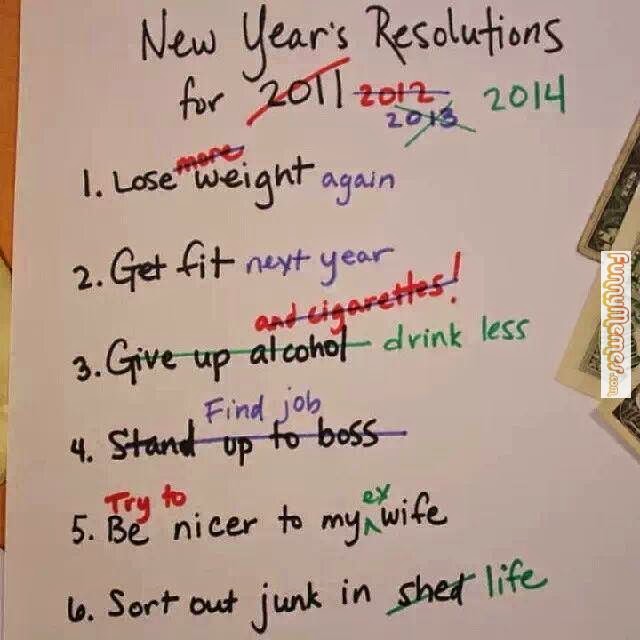 New Year's Resolutions
for 2011 2012 2013 2014
1. Lose more weight again
2. Get fit next year
and cigarettes!
3. Give up alcohol drink less
Find job
4. Stand up to boss
Try to ex
5. Be nicer to my wife
6. Sort out junk in shed life
FunnyMemes.com